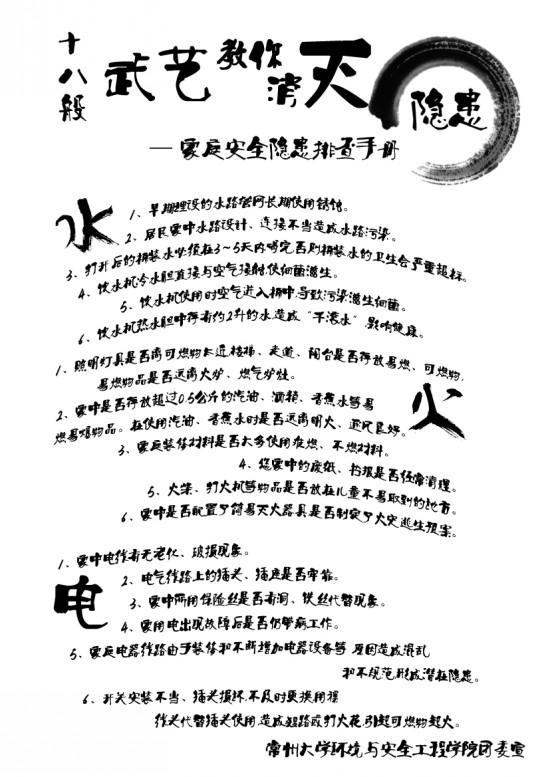 十八般
武艺教你消灭隐患
—家庭安全隐患排查手册
水
1、早期埋设的水路管网长期使用锈蚀。
2、居民家中水路设计、连接不当造成水路污染。
3、打开后的桶装水必须在3~5天内喝完否则桶装水的卫生会严重超标。
4、饮水机冷水胆直接与空气接触,使细菌滋生。
5、饮水机使用时空气进入桶中,导致污染滋生细菌。
6、饮水机热水胆中存有约2升的水造成“千滚水”影响健康。
1、照明灯具是否离可燃物太近楼梯、走道、阳台是否存放易燃、可燃物,
易燃物品是否远离火炉、燃气炉灶。
2、家中是否存放超过0.5公斤的汽油、酒精、香蕉水等易
燃易爆物品。在使用汽油、香蕉水时是否远离明火、通风良好。
火
3、家庭装修材料是否太多使用难燃、不燃材料。
4、您家中的废纸、书报是否经常清理。
5、火柴、打火机等物品是否放在儿童不易取到的地方。
6、家中是否配置了简易灭火器具是否制定了火灾逃生预案。
电
1、家中电线有无老化、破损现象。
2、电气线路上的插头、插座是否牢靠。
3、家中所用保险丝是否有铜、铁丝代替现象。
4、家用电出现故障后是否仍带病工作。
5、家庭电器线路由于装修和不断增加电器设备等 原因造成混乱
和不规范,形成潜在隐患。
6、开关安装不当、插头损坏,不及时更换用裸
线头代替插头使用,造成短路或打火花,引起可燃物起火。
常州大学环境与安全工程学院团委宣